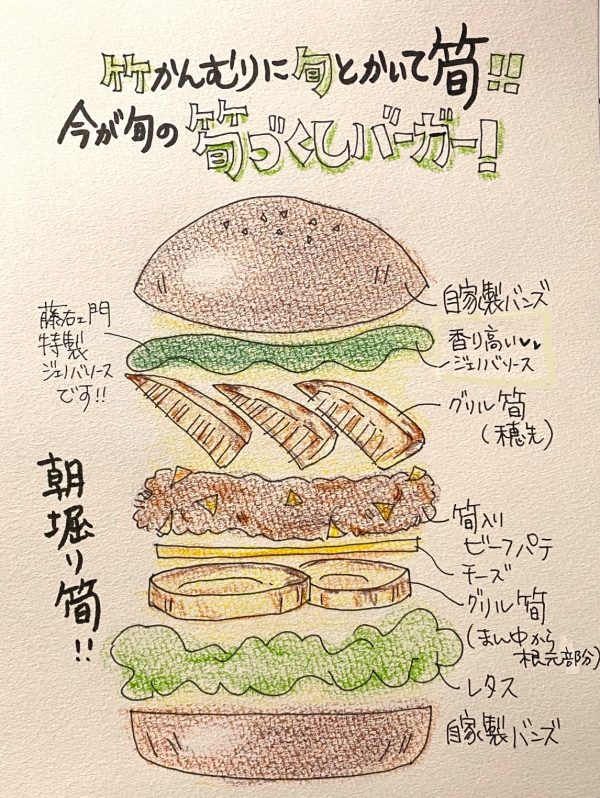 竹かんむりに旬とかいて筍!!
今が旬の筍づくしバーガー!
自家製バンズ
藤右ェ門
特製
ジェノバソース
です!!
香り高い
ジェノバソース
グリル筍
(穂先)
朝堀り筍!!
筍入り
ビーフパテ
チーズ
グリル筍
(まん中から
根元部分)
レタス
自家製バンズ